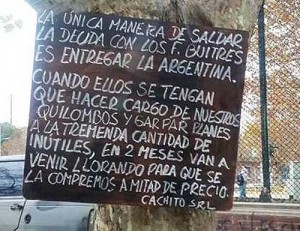 LA ÚNICA MANERA DE SALDAR
LA DEUDA CON LOS F. BUITRES
ES ENTREGAR LA ARGENTINA.
CUANDO ELLOS SE TENGAN
QUE HACER CARGO DE NUESTROS
QUILOMBOS Y GARPAR PLANES
A LA TREMENDA CANTIDAD DE
INÚTILES, EN 2 MESES VAN A
VENIR LLORANDO PARA QUE SE
LA COMPREMOS A MITAD DE PRECIO.
CACHITO SRL